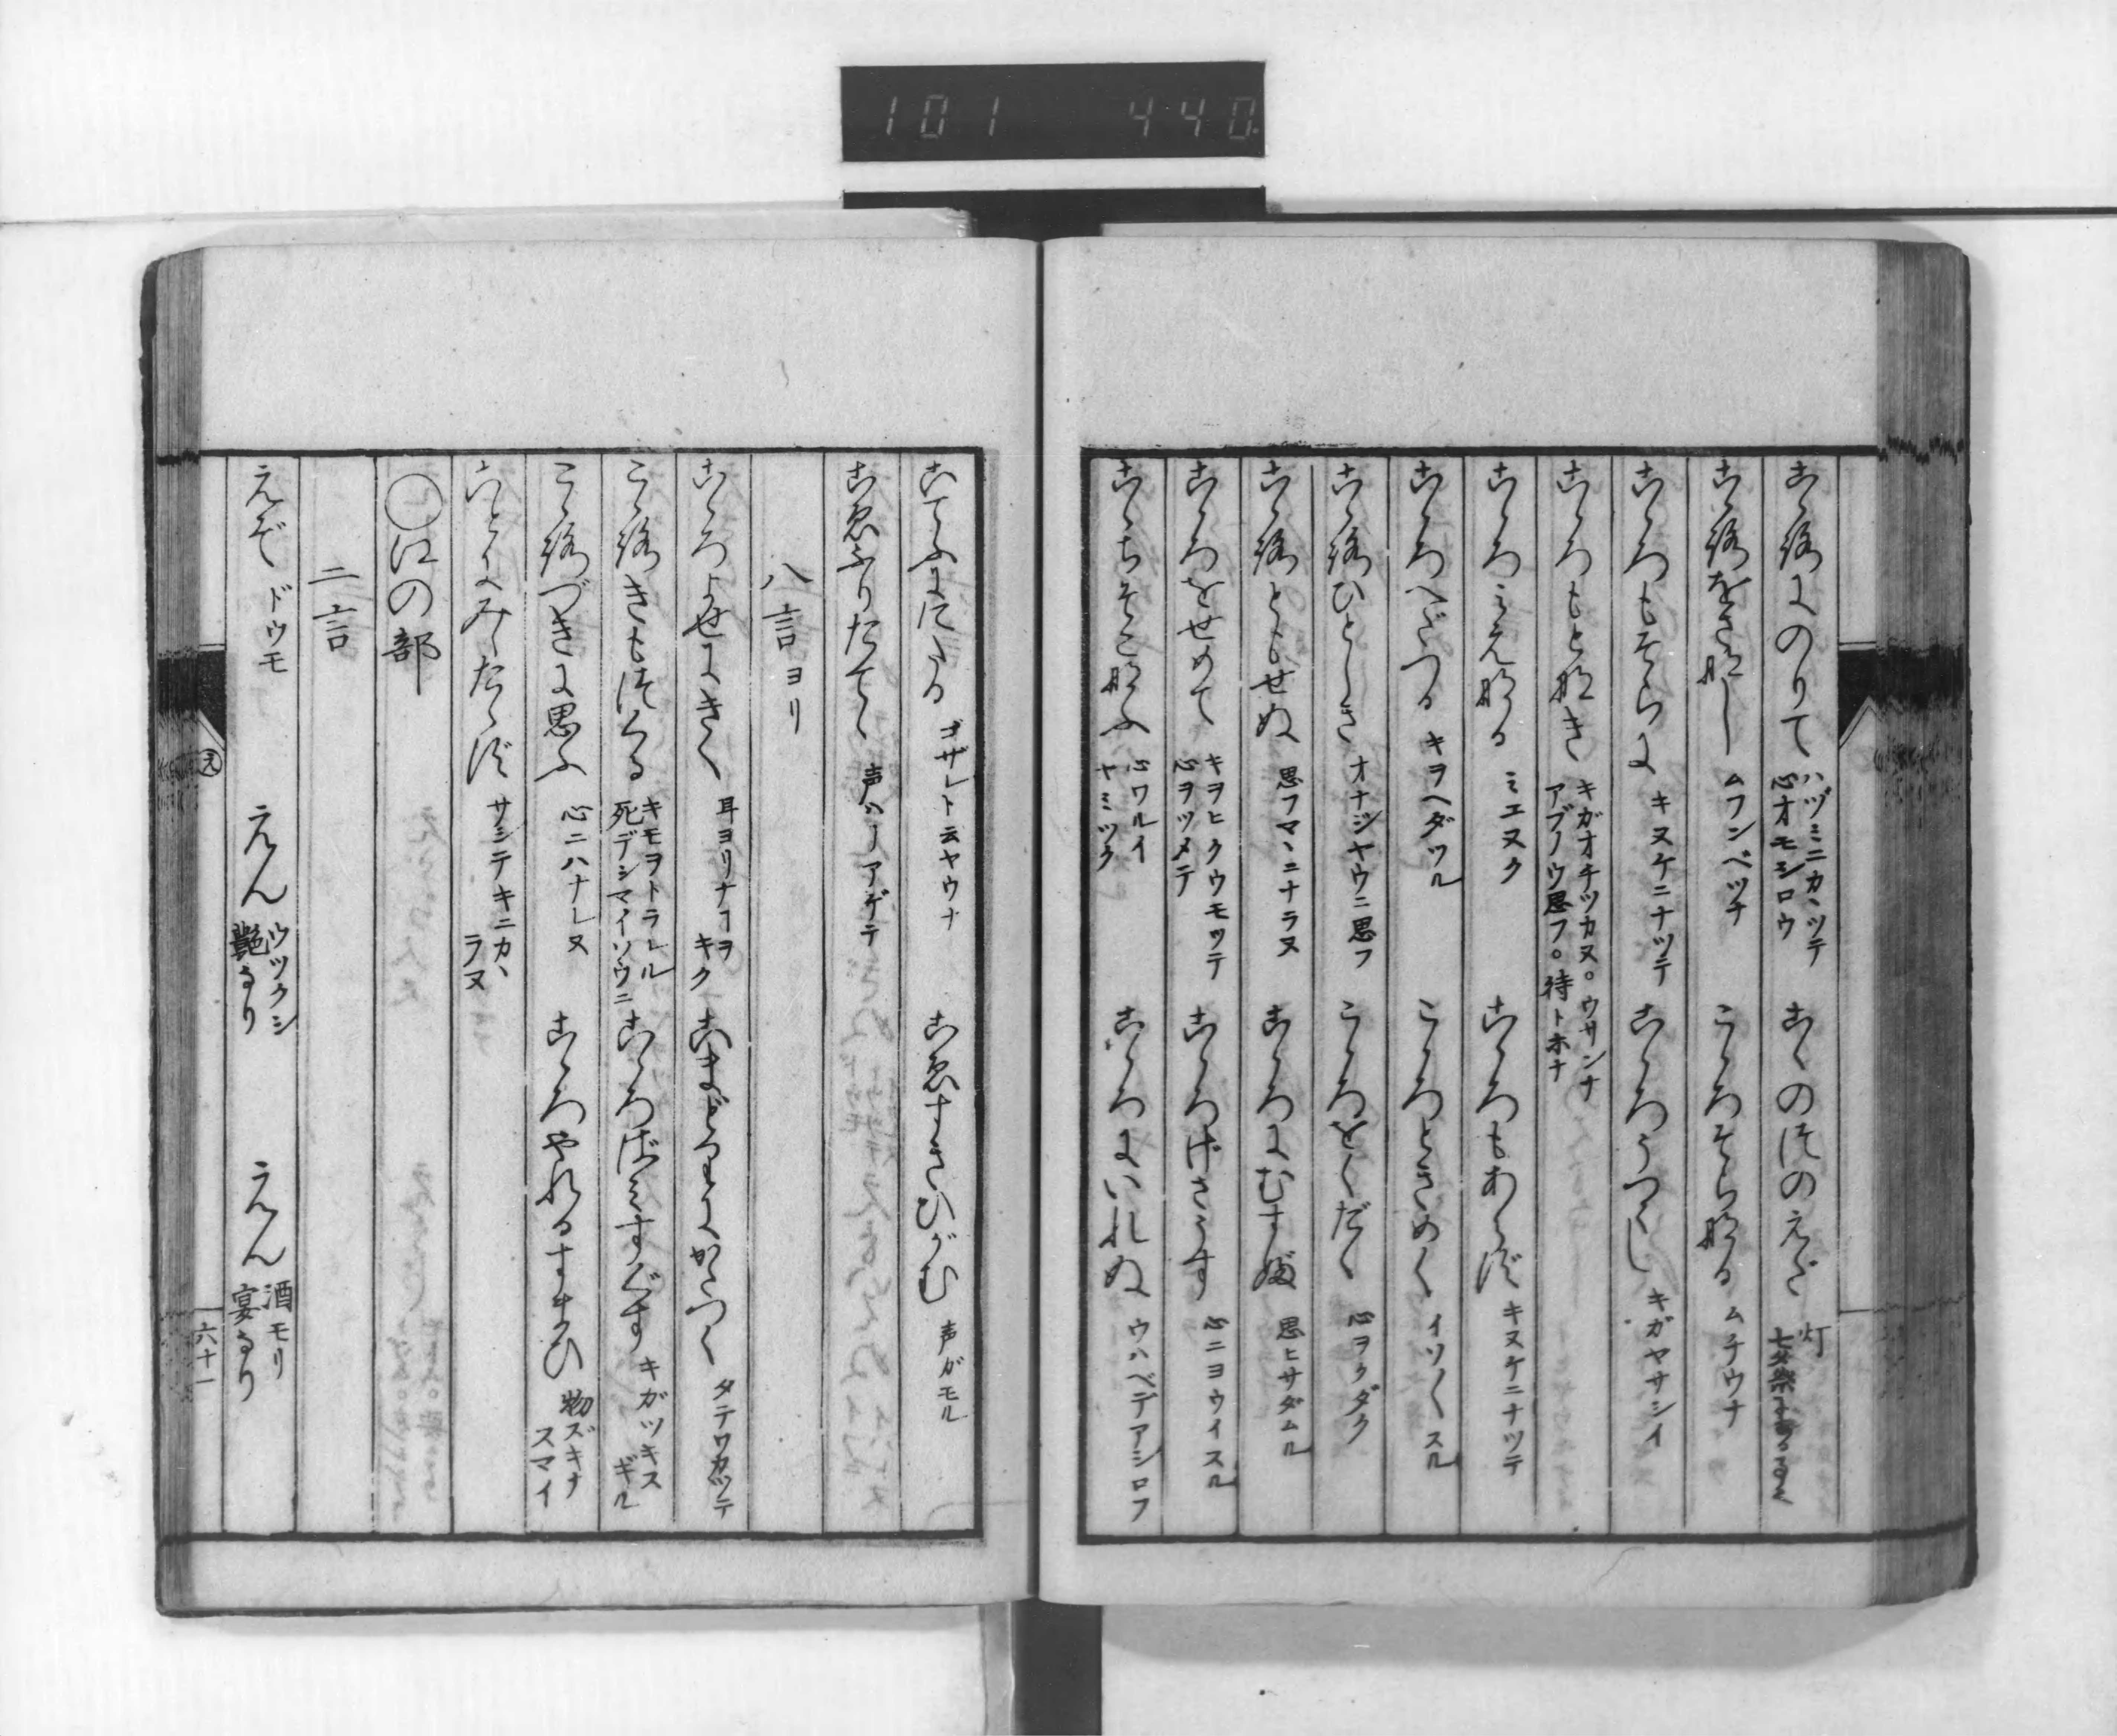 101 440
こゝろにのりて ハヅミニカヽツテ 心オモシロウ こゝのほのえだ 灯
こゝろをさなし ムフンベツナ こゝろそらなる ムチウナ
こゝろもそらに キヌケニナツテ こゝろうつくし キガヤサシイ
こゝろもとなき キガオチツカヌ。ウサンナ アブノウ思フ。待トホナ
こゝろみえなる ミエヌク こゝろもあらず キヌケニナツテ
こゝろへだつる キヲヘダツル こゝろときめく イソ〳〵スル
こゝろひとしき オナジヤウニ思フ こゝろをくだく 心ヲクダク
こゝろともせぬ 思フマヽニナラヌ こゝろにむすぶ 思ヒサダムル
こゝろをせめて キヲヒクウモツテ 心ヲツメテ こゝろげさうす 心ニヨウイスル
こゝちそこなふ 心ワルイ ヤミツク こゝろにいれぬ ウハベデアシロフ
こてふににたる ゴザレト云ヤウナ こゑすきひがむ 声ガモル
こゑふりたてゝ 声ハリアゲテ
八言ヨリ
こゝろよせにきく 耳ヨリナコヲキク タテワカツテ
こゝろぎもほくる キモヲトラレル 死デシマイソウニ こゝろばみすぐす キガツキスギル
こゝろづきに思ふ 心ニハナレヌ こゝろやれるすまひ 物ズキナスマイ
ことにみゝたゝず サシテキニカヽラヌ
○江の部
二言
えぞ ドウモ えん ウツクシ 艶なり えん 酒モリ 宴なり
え
六十一